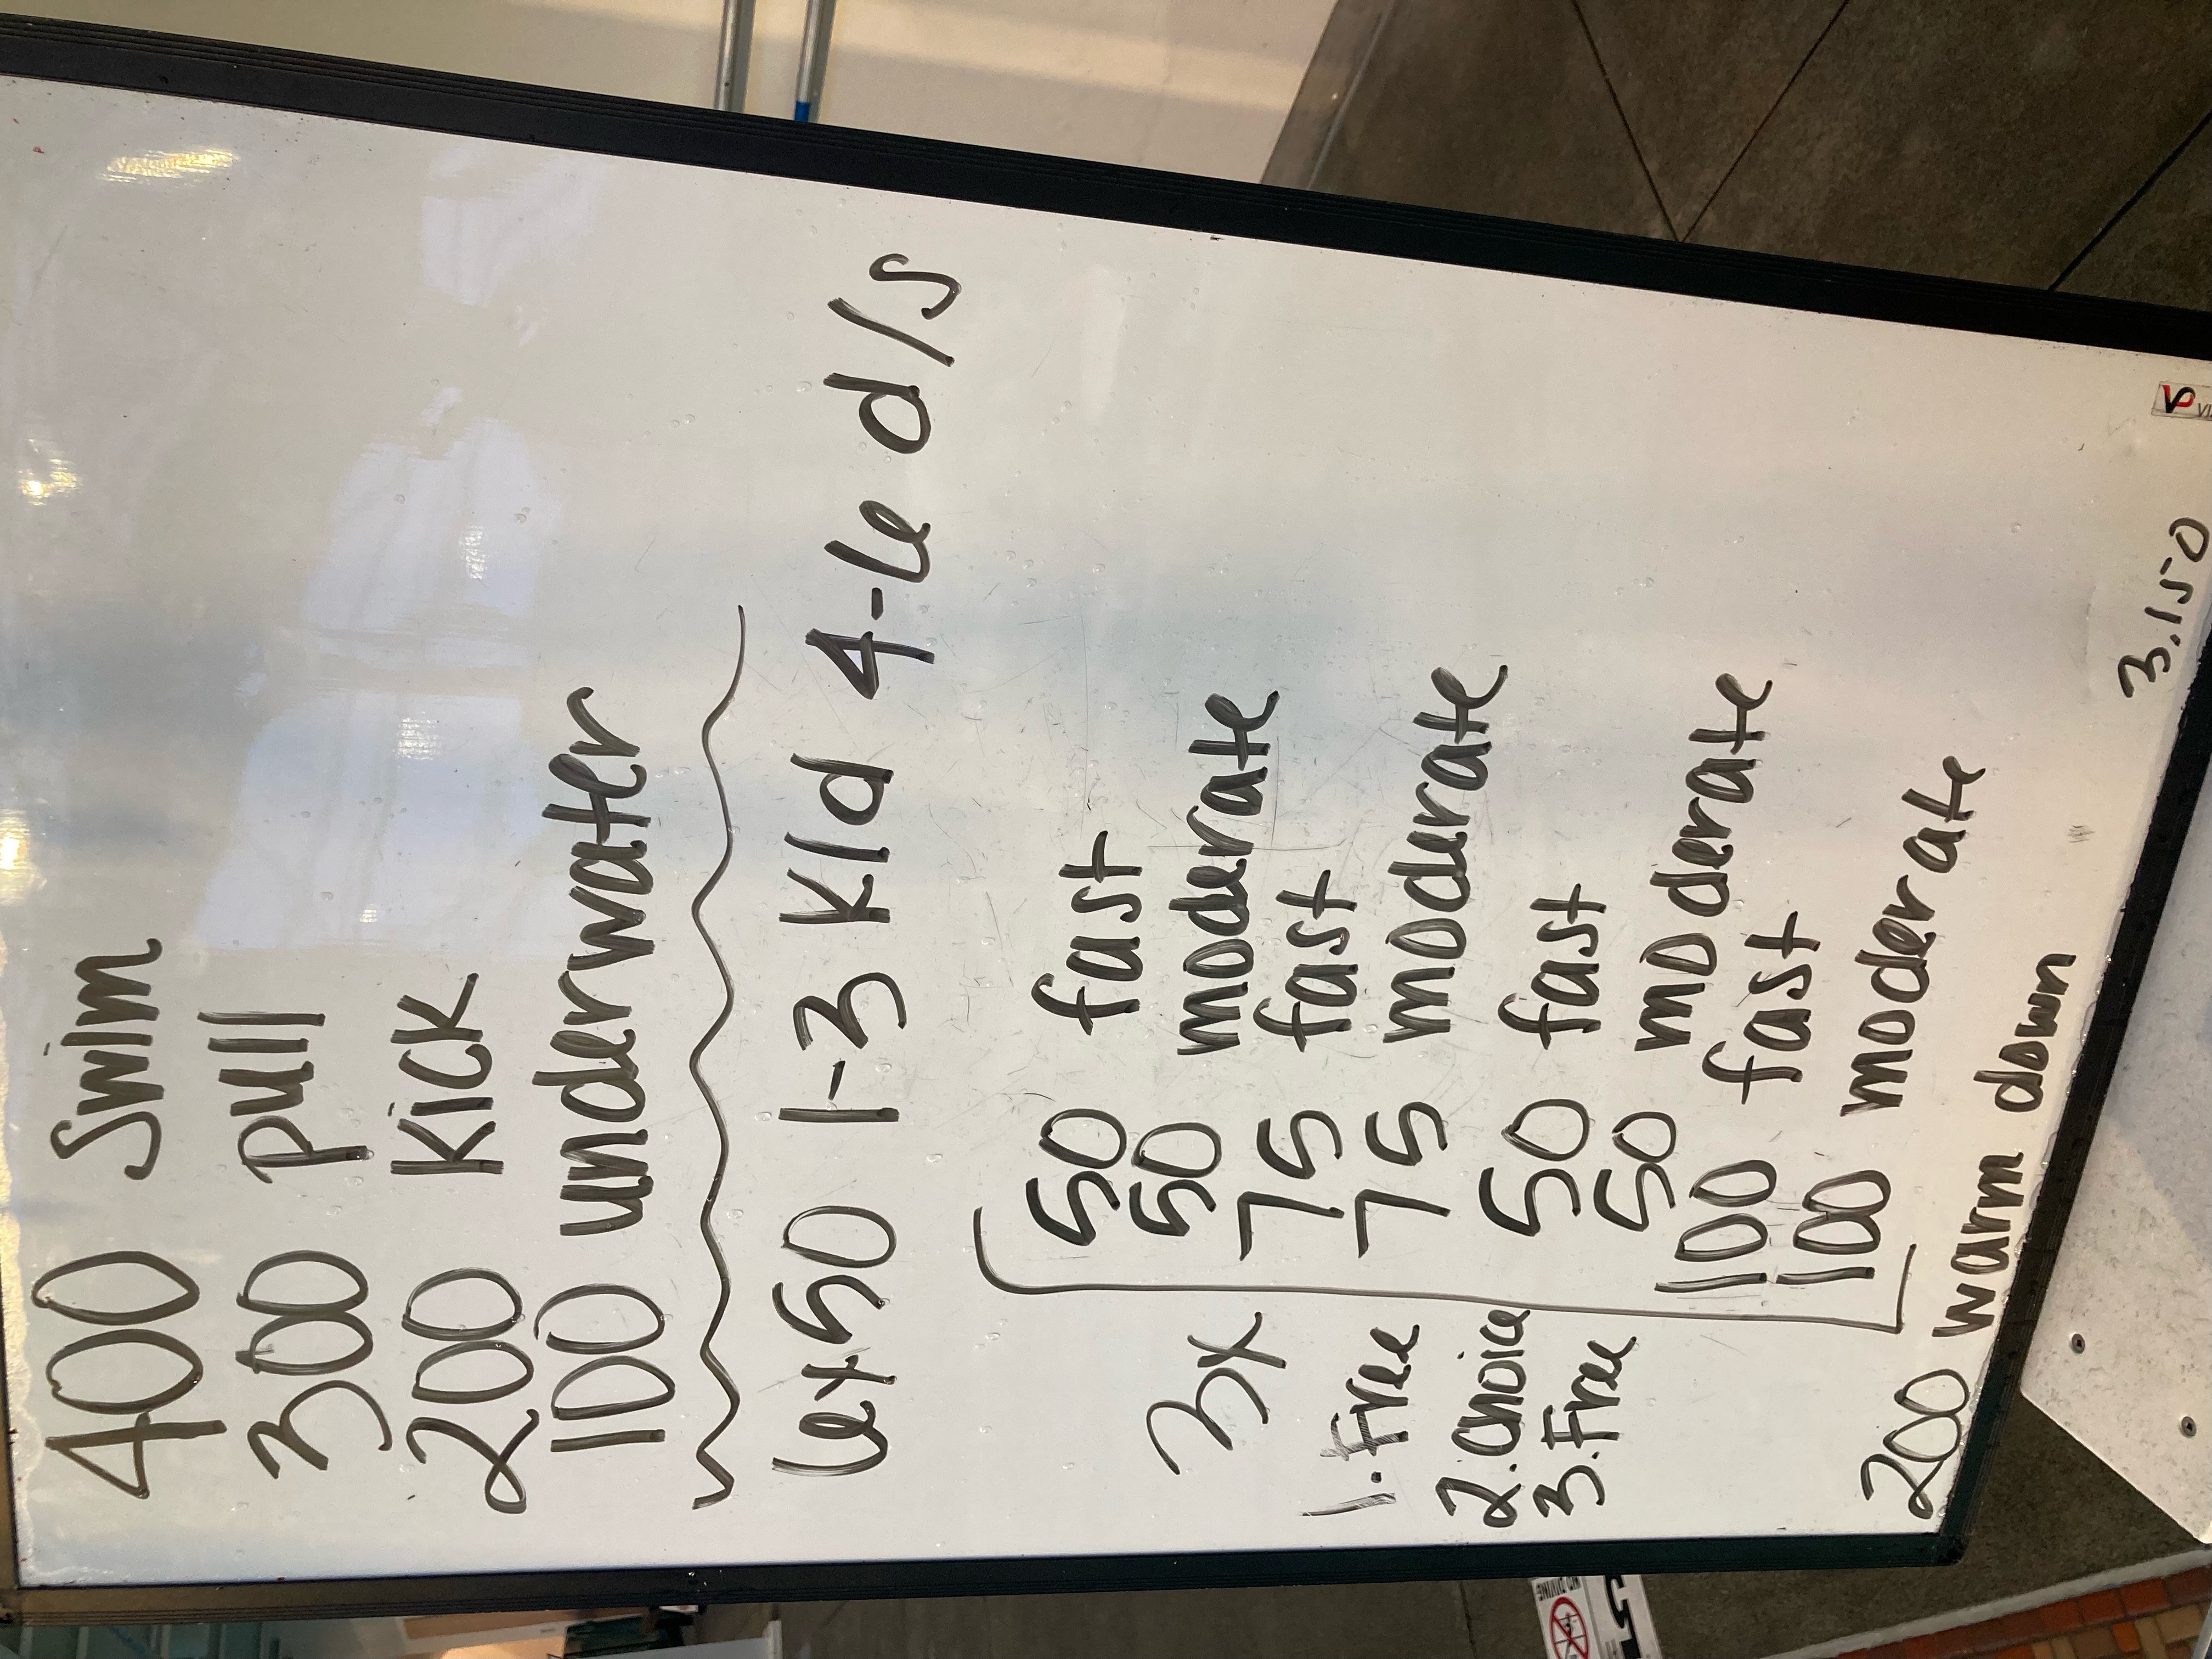 400 Swim
300 pull
200 Kick
100 underwater
6x50 1-3 K/d 4-6 d/s
3x
1. Free
2. Choice
3. Free
50 fast
50 moderate
75 fast
75 moderate
50 fast
50 moderate
100 fast
100 moderate
200 warm down
3,150
NO DIVING